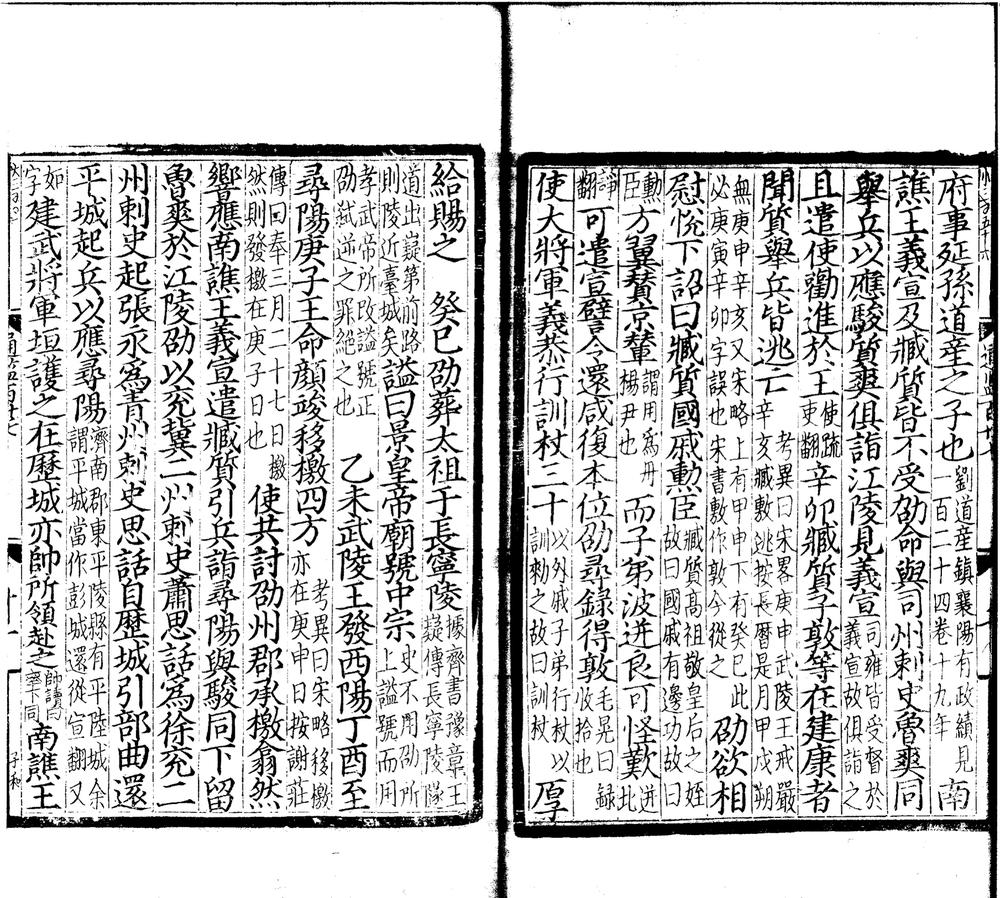 府事延孫道産之子也劉道産鎮襄陽有政績見一百二十四卷十九年南
譙王義宣及臧質皆不受劭命與司州刺史魯爽同
舉兵以應駿質爽俱詣江陵見義宣司雍皆受督於義宣故俱詣之
且遣使勸進於王使疏吏翻辛卯臧質子敦等在建康者
聞質舉兵皆逃亡考異曰宋畧庚申武陵王戒嚴辛亥臧敷逃按長曆是月甲戌朔無庚申辛亥又宋略上有甲申下有癸巳此必庚寅辛卯字誤也宋書敷作敦今從之劭欲相
慰悅下詔曰臧質國戚勲臣臧質高祖敬皇后之姪故曰國戚有邊功故曰勲臣
方翼贊京輦謂用爲丹楊尹也而子弟波迸良可怪歎迸北諍翻
可遣宣譬令還咸復本位劭尋錄得敦毛晃曰録收拾也
使大將軍義恭行訓杖三十以外戚子弟行杖以訓勑之故曰訓杖厚
給賜之　癸巳劭葬太祖于長寧陵據齊書豫章王嶷傳長寧陵隧道出嶷第前路則陵近臺城矣
謚曰景皇帝廟號中宗史不用劭所上謚號而用孝武帝所改謚號正劭弑逆之罪絕之也
乙未武陵王發西陽丁酉至
尋陽庚子王命顔竣移檄四方考異曰宋略移檄亦在庚申日按謝莊傳曰奉三月二十七日檄然則發檄在庚子日也
使共討劭州郡承檄翕然
響應南譙王義宣遣臧質引兵詣尋陽與駿同下留
魯爽於江陵劭以兖冀二州刺史蕭思話爲徐兖二
州刺史起張永爲青州刺史思話自歷城引部曲還
平城起兵以應尋陽濟南郡東平陵縣有平陸城余謂平城當作彭城還從宣翻又如字
建武將軍垣護之在歷城亦帥所領赴之帥讀曰率下同南譙王